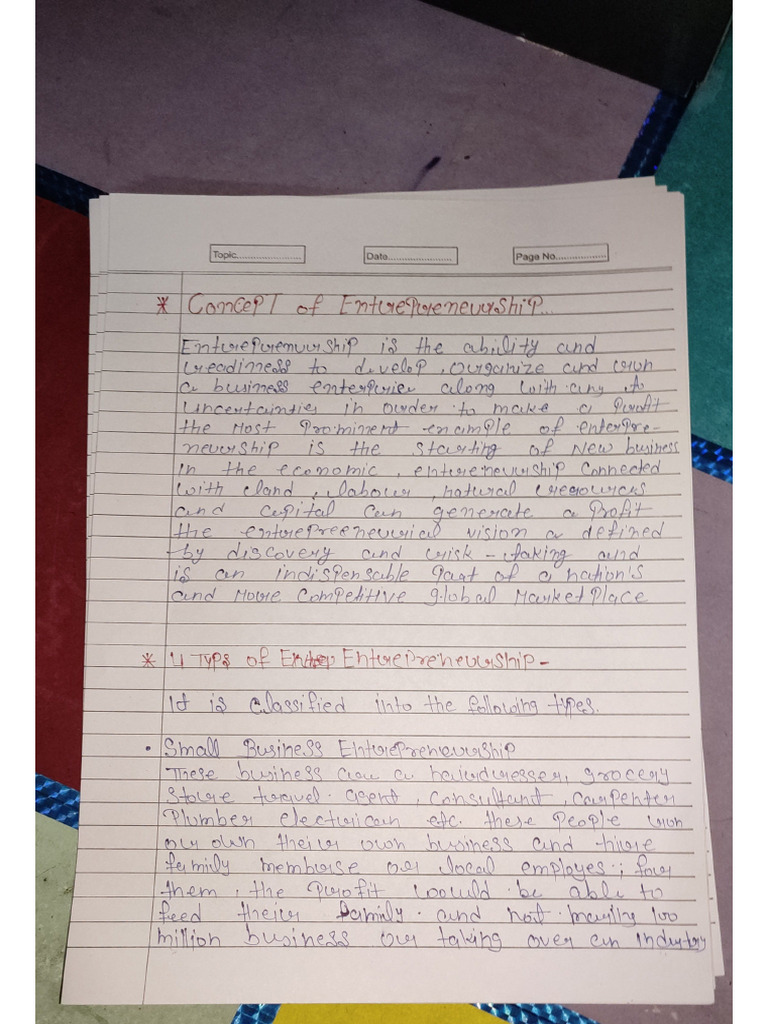 Topic........................ Date........................ Page No...................
* Concept of Entrepreneurship...
Entreprenurship is the ability and
readiness to develop, organize and run
a business enterprise along with any
uncertainties in order to make a Profit
the Most Prominent example of enterpre-
neurship is the starting of New business
In the economic, entreneurship Connected
with land, labour, natural resources
and capital can generate a Profit
the entrepreeneurial vision a defined
by discovery and risk-taking and
is an indispensable Part of a nation's
and More Competitive global MarketPlace
* 4 Types of Entrepreneurship-
It is classified into the following types.
• Small Business Entrepreneurship
These business are a hairdresser, grocery
store travel agent, consultant, carpenter
Plumber electrican etc. these People run
or own their own business and hire
family membrse or local employes; for
them, the Profit would be able to
feed their family and not making 100
million business or taking over an Industry